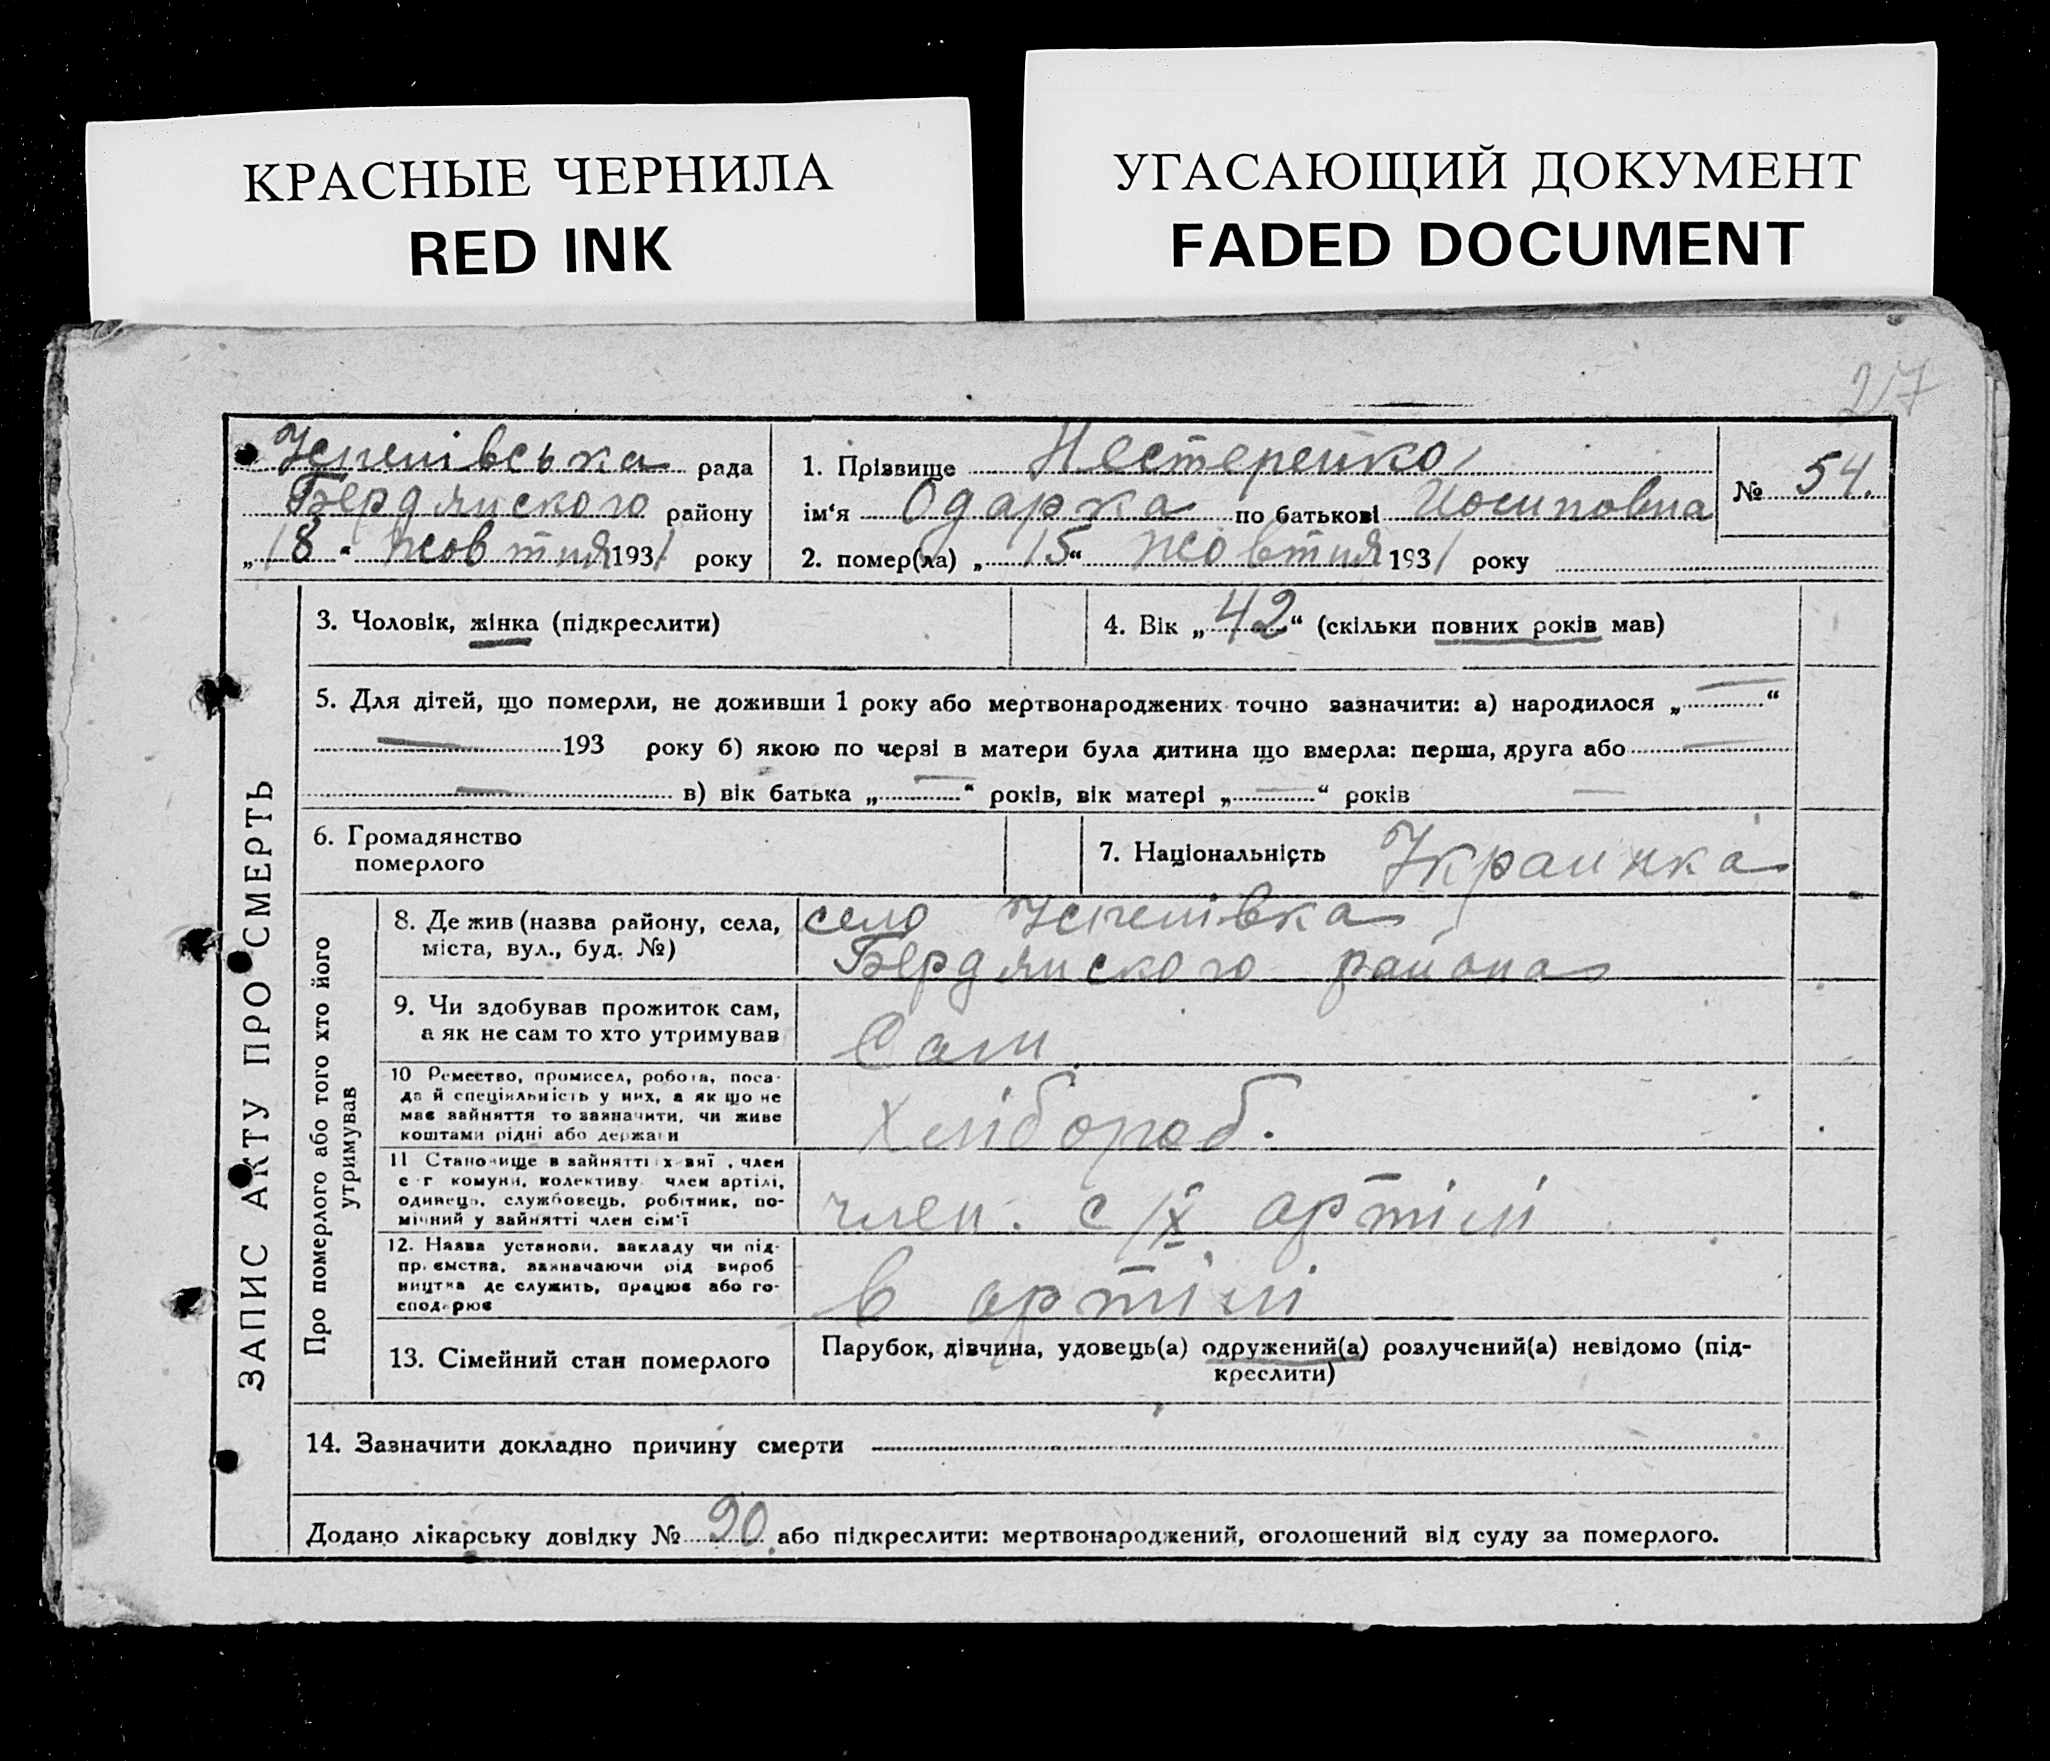 КРАСНЫЕ ЧЕРНИЛА
RED INK
УГАСАЮЩИЙ ДОКУМЕНТ
FADED DOCUMENT
27
Успенівська рада
Бердянского району
„18" жовтня 1931 року
1. Прізвище Нестеренко
ім'я Одарка по батькові Иосиповна
2. помер(ла) „15" жовтня 1931 року
№ 54.
ЗАПИС АКТУ ПРО СМЕРТЬ
3. Чоловік, жінка (підкреслити)
4. Вік „42" (скільки повних років мав)
5. Для дітей, що померли, не доживши 1 року або мертвонароджених точно зазначити: а) народилося „ "
193 року б) якою по черзі в матери була дитина що вмерла: перша, друга або
в) вік батька „ " років, вік матері „ " років
6. Громадянство
померлого
7. Національність Украинка
Про померлого або того хто його
утримував
8. Де жив (назва району, села,
міста, вул., буд. №)
село Успенівка
Бердянского района
9. Чи здобував прожиток сам,
а як не сам то хто утримував
Сам
10 Ремество, промисел, робота, поса-
да й спеціяльність у них, а як що не
має зайняття то зазначити, чи живе
коштами рідні або держави
Хлібороб.
11 Становище в зайнятті: хазяї, член
с-г комуни, колективу, член артілі,
одинець, службовець, робітник, по-
мічний у зайнятті член сім'ї
член. с/х артілі
12. Назва установи, закладу чи під-
приємства, зазначаючи рід вироб
ництва де служить, працює або го-
сподарює
в артілі
13. Сімейний стан померлого
Парубок, дівчина, удовець(а) одружений(а) розлучений(а) невідомо (під-
креслити)
14. Зазначити докладно причину смерти
Додано лікарську довідку № 90 або підкреслити: мертвонароджений, оголошений від суду за померлого.